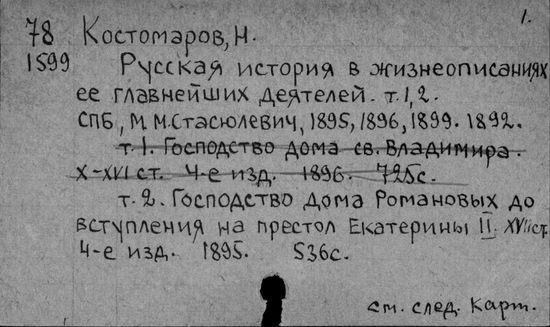 1.
78 Костомаров, Н.
1599 Русская история в жизнеописаниях
ее главнейших деятелей. т.1,2.
СПБ, М.М.Стасюлевич, 1895, 1896, 1899. 1892.
т.1. Господство дома св. Владимира.
X-XVI ст. 4-е изд. 1896. 725с.
т.2. Господство Дома Романовых до
вступления на престол Екатерины II. XVII ст.
4-е изд. 1895. 536с.
см. след. карт.